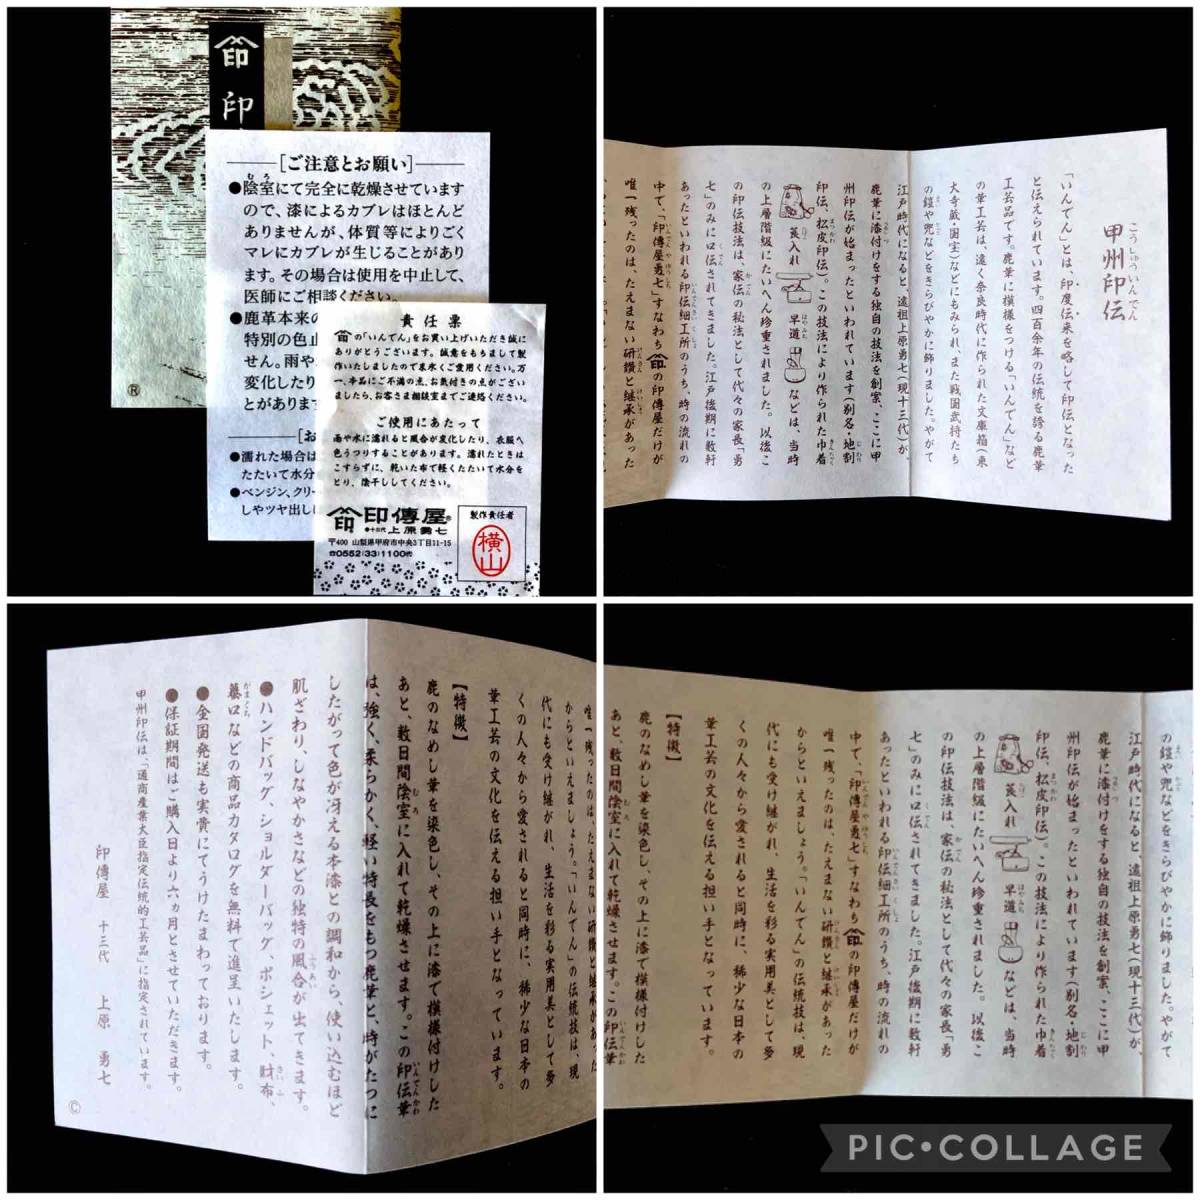 印
印
®
[ご注意とお願い]
●陰室にて完全に乾燥させています
むろ
ので、漆によるカブレはほとんど
ありませんが、体質等によりごく
マレにカブレが生じることがあり
ます。その場合は使用を中止して、
医師にご相談ください。
●鹿革本来の
特別の色止
せん。雨や
変化したり
とがあります
[お
●濡れた場合は
たたいて水分
●ベンジン、クリー
しやツヤ出しに
責任票
印の「いんでん」をお買い上げいただき誠に
ありがとうございます。誠意をもちまして製
作いたしましたので末永くご愛用ください。万
一、本品にご不満の点、お気付きの点がござい
ましたら、お客さま相談室までご連絡ください。
ご使用にあたって
雨や水に濡れると風合が変化したり、衣服へ
色うつりすることがあります。濡れたときは
こすらずに、乾いた布で軽くたたいて水分を
とり、陰干ししてください。
印 印傳屋®
●十三代 上原勇七
〒400 山梨県甲府市中央3丁目11-15
☎0552(33)1100代
製作責任者
横山
甲州印伝
こうしゅういんでん
「いんでん」とは、印度伝来を略して印伝となった
と伝えられています。四百余年の伝統を誇る鹿革
工芸品です。鹿革に模様をつける「いんでん」など
の革工芸は、遠く奈良時代に作られた文庫箱(東
大寺蔵・国宝)などにもみられ、また戦国武将たち
の鎧や兜などをきらびやかに飾りました。やがて
江戸時代になると、遠祖上原勇七(現十三代)が、
鹿革に漆付けをする独自の技法を創案、ここに甲
州印伝が始まったといわれています(別名・地割
印伝、松皮印伝)。この技法により作られた巾着
莨入れ 早道 などは、当時
の上層階級にたいへん珍重されました。以後こ
の印伝技法は、家伝の秘法として代々の家長「勇
七」のみに口伝されてきました。江戸後期に数軒
あったといわれる印伝細工所のうち、時の流れの
中で、「印傳屋勇七」すなわち印の印傳屋だけが
唯一残ったのは、たえまない研鑽と継承があった
唯一残ったのは、たえまない研鑽と継承があった
からといえましょう。「いんでん」の伝統技は、現
代にも受け継がれ、生活を彩る実用美として多
くの人々から愛されると同時に、稀少な日本の
革工芸の文化を伝える担い手となっています。
【特徴】
鹿のなめし革を染色し、その上に漆で模様付けした
あと、数日間陰室に入れて乾燥させます。この印伝革
は、強く、柔らかく、軽い特長をもつ鹿革と、時がたつに
したがって色が冴える本漆との調和から、使い込むほど
肌ざわり、しなやかさなどの独特の風合が出てきます。
●ハンドバッグ、ショルダーバッグ、ポシェット、財布、
蟇口などの商品カタログを無料で進呈いたします。
●全国発送も実費にてうけたまわっております。
●保証期間はご購入日より六ヵ月とさせていただきます。
甲州印伝は、「通商産業大臣指定伝統的工芸品」に指定されています。
印傳屋 十三代 上原 勇七
©
の鎧や兜などをきらびやかに飾りました。やがて
江戸時代になると、遠祖上原勇七(現十三代)が、
鹿革に漆付けをする独自の技法を創案、ここに甲
州印伝が始まったといわれています(別名・地割
印伝、松皮印伝)。この技法により作られた巾着
莨入れ 早道 などは、当時
の上層階級にたいへん珍重されました。以後こ
の印伝技法は、家伝の秘法として代々の家長「勇
七」のみに口伝されてきました。江戸後期に数軒
あったといわれる印伝細工所のうち、時の流れの
中で、「印傳屋勇七」すなわち印の印傳屋だけが
唯一残ったのは、たえまない研鑽と継承があった
からといえましょう。「いんでん」の伝統技は、現
代にも受け継がれ、生活を彩る実用美として多
くの人々から愛されると同時に、稀少な日本の
革工芸の文化を伝える担い手となっています。
【特徴】
鹿のなめし革を染色し、その上に漆で模様付けした
あと、数日間陰室に入れて乾燥させます。この印伝革
PIC•COLLAGE